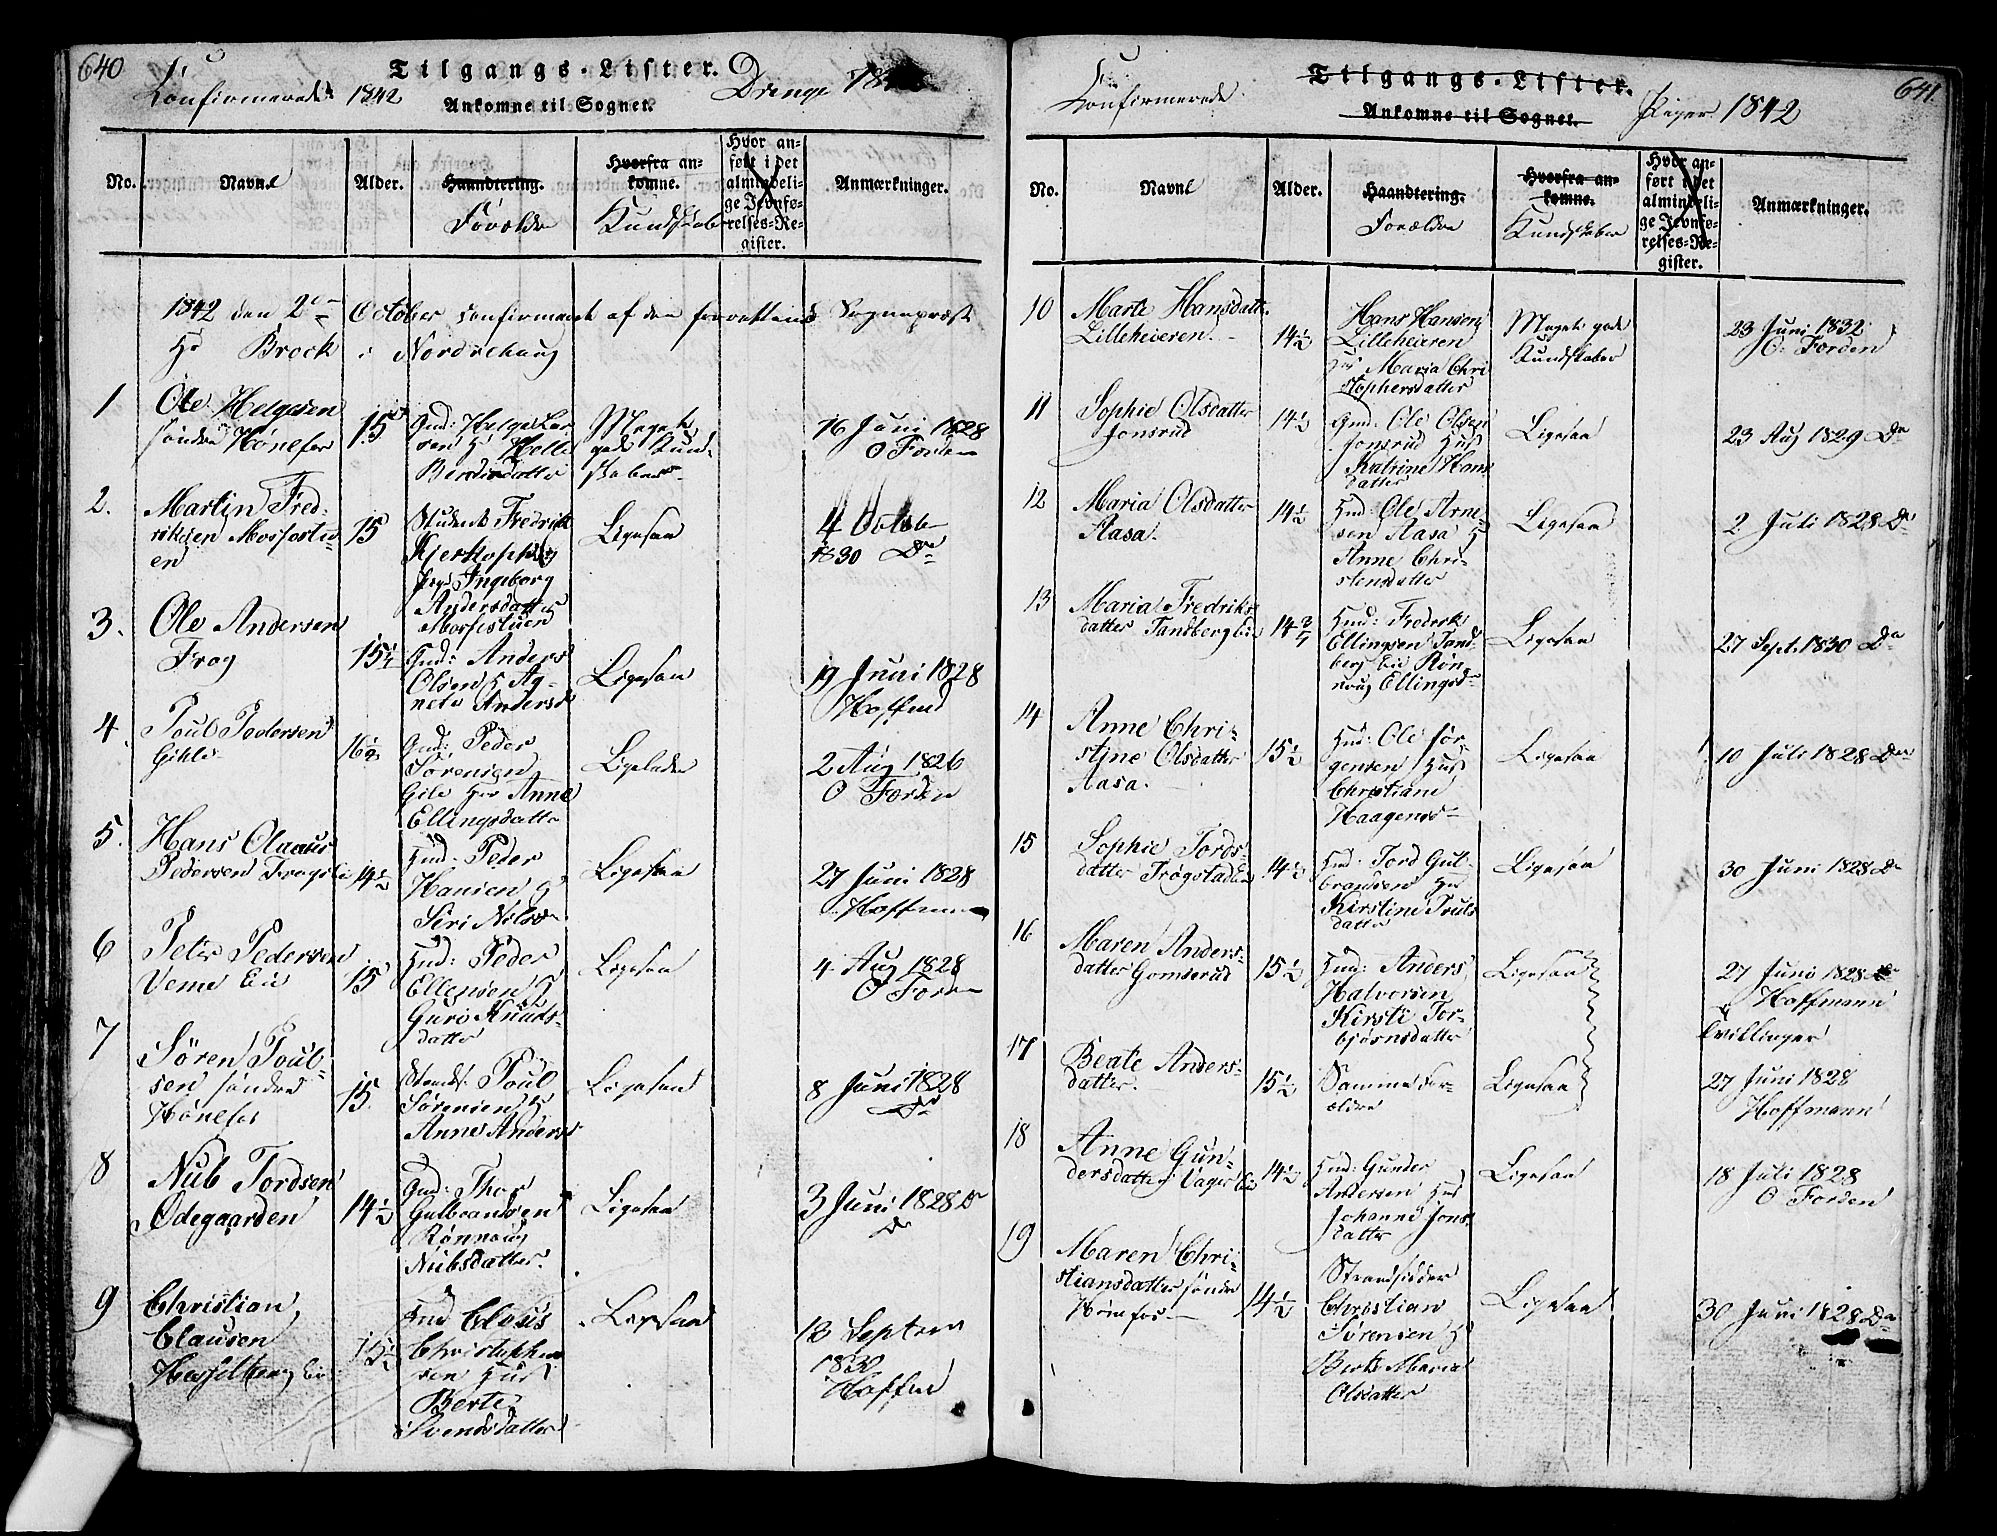 640
Tilgangs-Lister.
Konfirmerede 1842
Drenge
Ankomne til Sognet.
No.
Navne
Alder.
Haandtering.
Forældre
Hvorfra an-
komne.
Kundskaber
Hvor an-
ført i det
almindeli-
ge Jevnfø-
relses-Re-
gister.
Anmærkninger.
1842 den 2den October confirmeret af den forrettende Sognepræst
Hr Brock i Norderhoug
1
Ole Helgesen
søndre Hønefos
15
Gmd: Helge Lar
sen H Helle
Meget
gode Kund-
skaber
16 Juni 1828
O Forden
2.
Martin Fred-
riksen Mosfostu
en
15
Student Fredrik
Kjerkoph
Pige Ingeborg
Andersdatter
Mosfostuen
Ligesaa
4 Octobr
1830 Do
3.
Ole Andersen
Frog
15 1/4
Gmd: Anders
Olsen H Ag-
nete Andersd
Ligesaa
19 Juni 1828
Hoffmd
4.
Poul Pedersen
Gihle
16 1/2
Gmd: Peder
Sørensen
Gile H Anne
Ellingsdatter
Ligeledes
2 Aug 1826
O Forden
5.
Hans Olaus
Pedersen Frogsei
14 1/2
Hmd: Peder
Hansen H
Siri Nilsd
Ligesaa
27 Juni 1828
Hoffman
6
Peter Pedersen
Veme Eie
15
Hmd: Peder
Ellensen H
Guri Knuds-
datter
Ligesaa
4 Aug 1828
O Forden
7
Søren Poul-
sen søndre
Hønefos
15
Strands. Poul
Sørensen H
Anne Andersd
Ligesaa
8 Juni 1828
Do
8
Nub Tordsen
Ødegaarden
14 1/2
Gmd: Thor
Gulbrandsen
Rønnaug
Nubsdatter.
Ligesaa
3 Juni 1828 Do
Do
9
Christian
Clausen
Hesselberg Eie
15 1/2
Hmd Claus
Christopher
sen Hus
Berte
Svendsdatter
Ligesaa
13 Septem
1830
Hoffm
641.
Tilgangs-Lister.
Konfirmerede
Piger 1842
Ankomne til Sognet.
No.
Navne
Alder.
Haandtering.
Forældre
Hvorfra an-
komne.
Kundskaber
Hvor an-
ført i det
almindeli-
ge Jevnfø-
relses-Re-
gister.
Anmærkninger.
10
Marte Hansdatter
Lilleheieren.
14 1/2
Hans Hansen
Lilleheieren
H Maria Chri
stophersdatter
Meget gode
Kundskaber
23 Juni 1832
O. Forden
11
Sophie Olsdatter
Jonsrud
14 1/2
Gmd: Ole Olsen
Jonsrud Hus
Katrine Hans
datter
Ligesaa
23 Aug 1829 Do
12
Maria Olsdatter
Aasa.
14 1/2
Hmd: Ole Arne-
sen Aasa H
Anne Chri-
stensdatter
Ligesaa
2 Juli 1828 Do
13
Maria Fredriks
datter Tandberg Eie
14 3/4
Hmd: Frederk
Ellingsen Tand-
berg Eie Røn-
naug Ellingsd
Ligesaa
27 Sept. 1830 Do
14
Anne Chri-
stine Olsdatter
Aasa.
15 1/2
Hmd: Ole Jør-
gensen Hus
Christiane
Haagensd
Ligesaa
10 Juli 1828 Do
15
Sophie Tords-
datter Frogstad Eie
14 1/2
Hmd: Tord Gul-
brandsen Hus
Kirstine Pouls
datter
Ligesaa
30 Juni 1828 Do
16
Maren Anders-
datter Gomserud
15 1/2
Hmd: Anders
Halvorsen
Kirsti Tor-
bjørnsdatter
Ligesaa
27 Juni 1828
Hoffmann
tvillinger
17
Beate Anders-
datter.
15 1/2
Samme For-
ældre
Ligesaa
27 Juni 1828
Hoffmann
18
Anne Gun-
dersdatter Vager Eie
14 1/2
Hmd: Gunder
Andersen Hus
Johanne Jons
datter
Ligesaa
18 Juli 1828
O Forden
19
Maren Chri-
stiansdatter søndre
Hønefos
14 1/2
Strandsidder
Christian
Sørensen H
Berte Maria
Olsdatter
Ligesaa
30 Juni 1828 Do